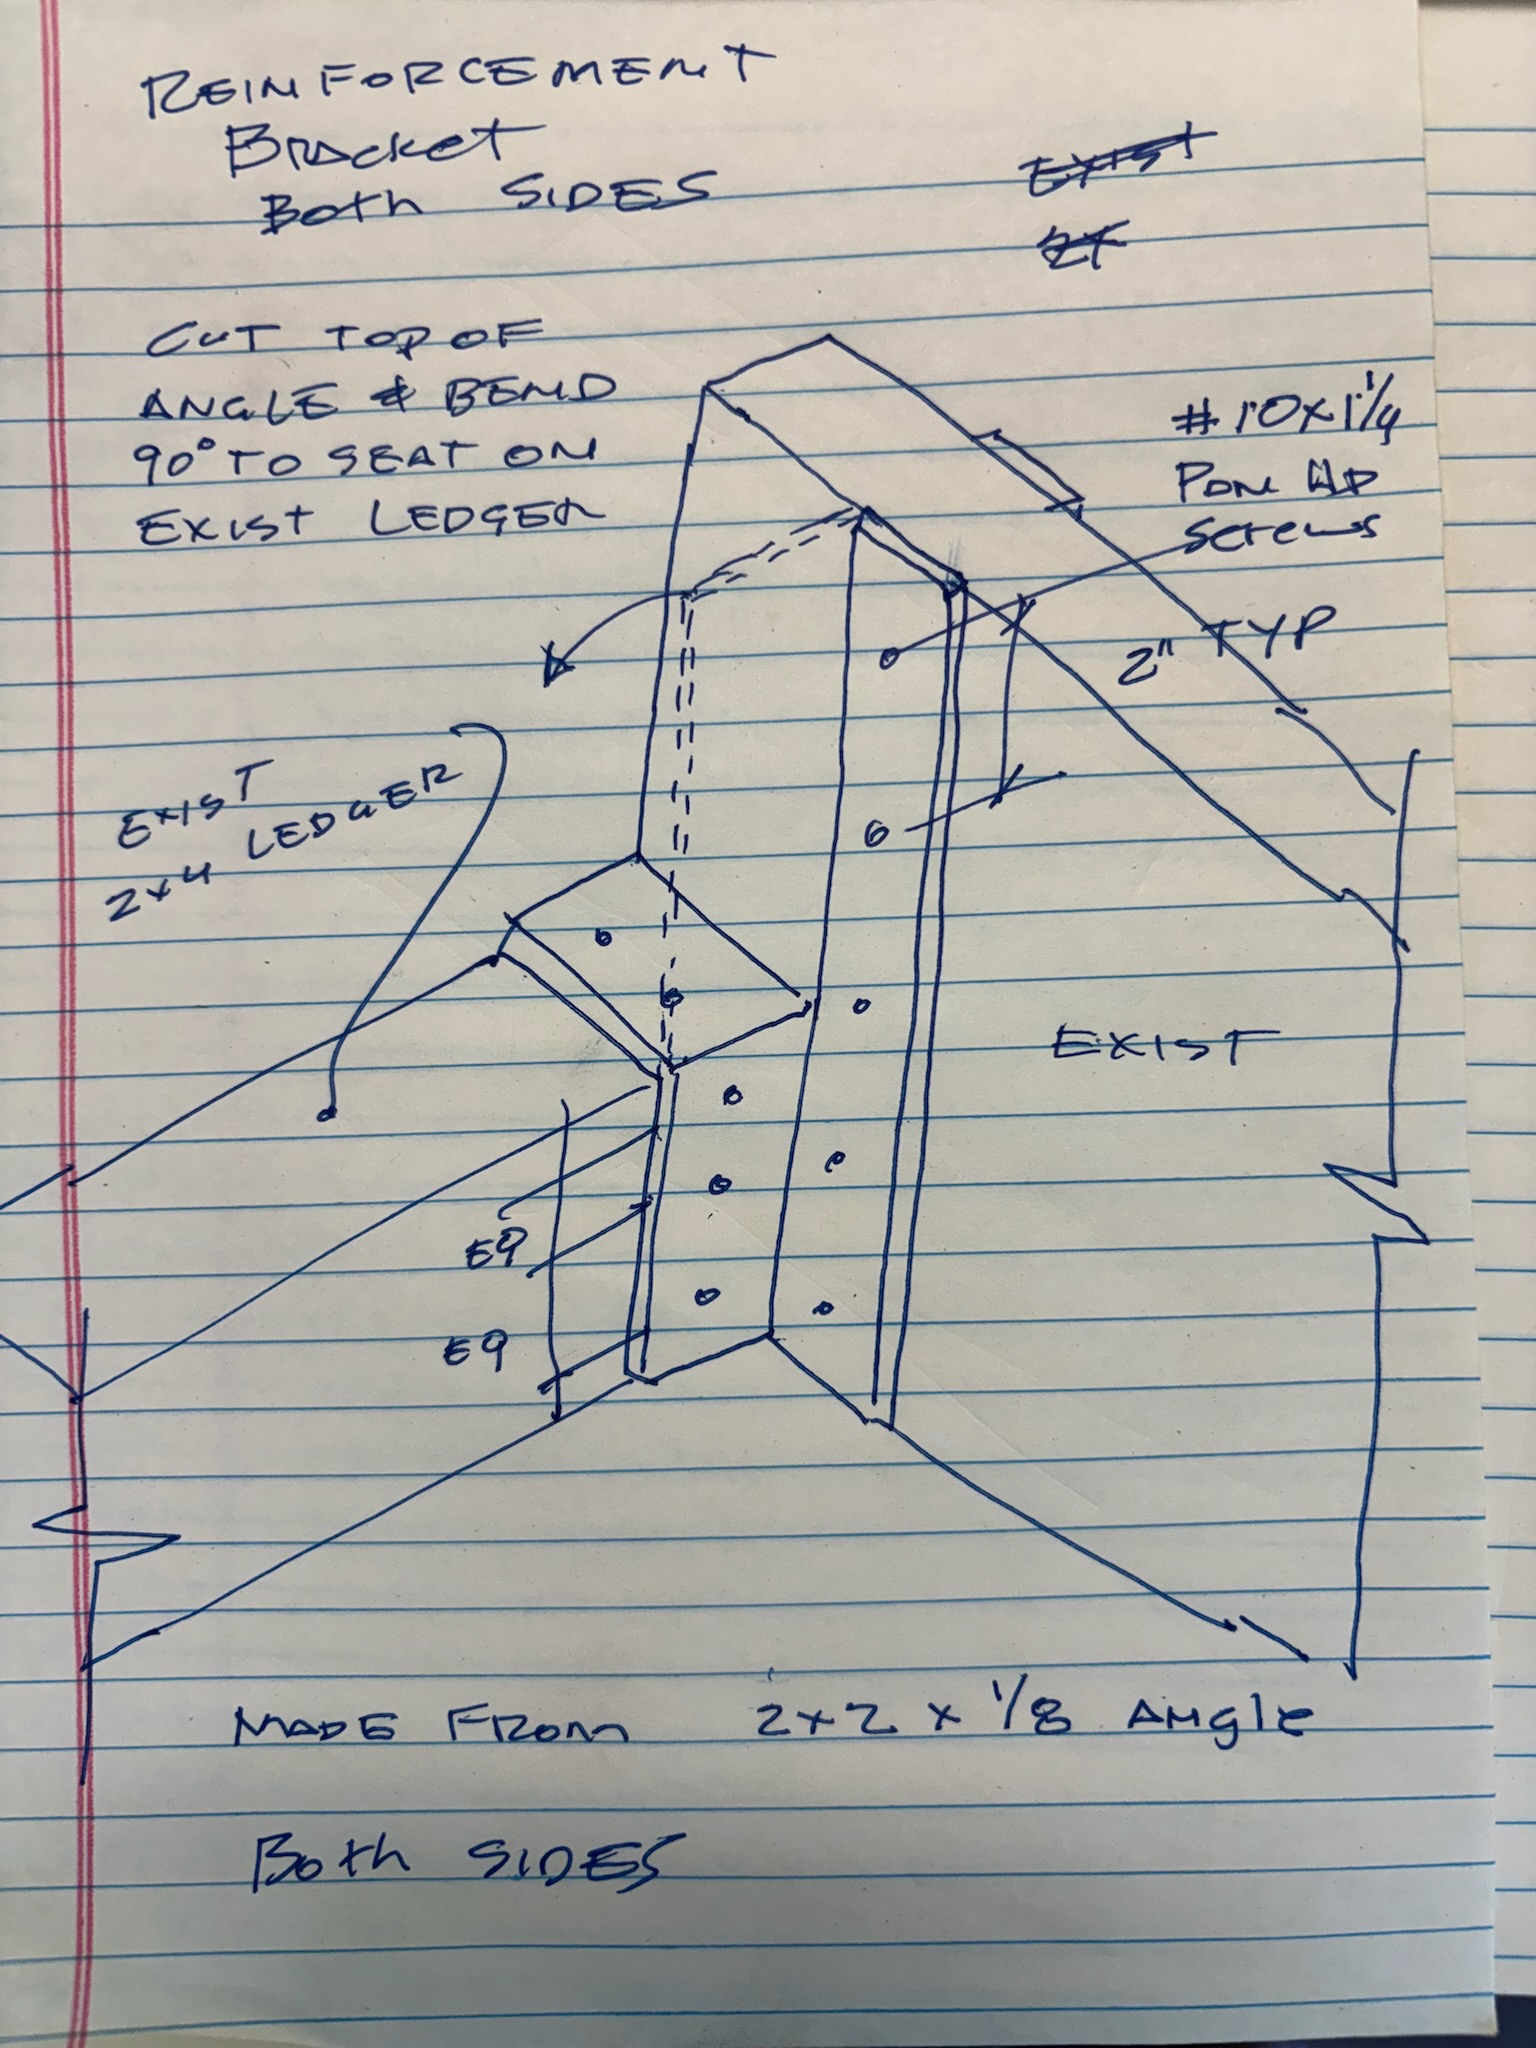 REINFORCEMENT
Bracket
Both SIDES
EXIST
2x
CUT TOP OF
ANGLE & BEND
90° TO SEAT ON
EXIST LEDGER
#10x1 1/4
PAN HD
Screws
2" TYP
EXIST
2x4 LEDGER
EXIST
EQ
EQ
MADE FROM 2x2 x 1/8 Angle
Both SIDES